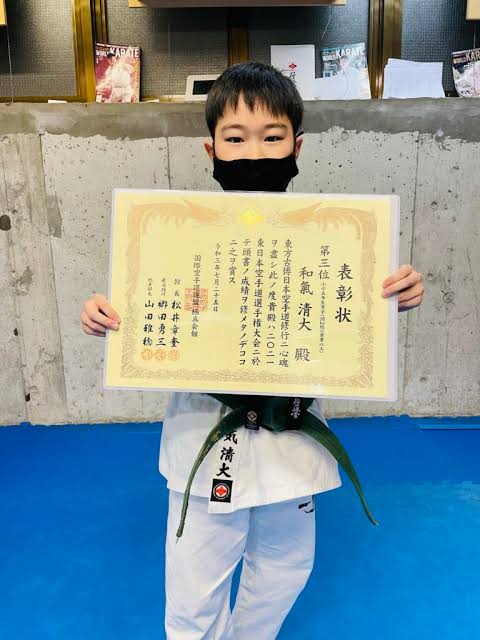 表彰状
第三位
和氣 清大 殿
東方古傳日本空手道修行ニ心魂
ヲ盡シ此ノ度貴殿ハ二〇二一
東日本空手道選手権大会ニ於
テ頭書ノ成績ヲ修メタノデココ
ニ之ヲ賞ス
令和三年七月二十五日
国際空手道連盟極真会館
館長 松井章奎
郷田勇三
山田雅稔
WORLD KARATE
WORLD KARATE
気 清大